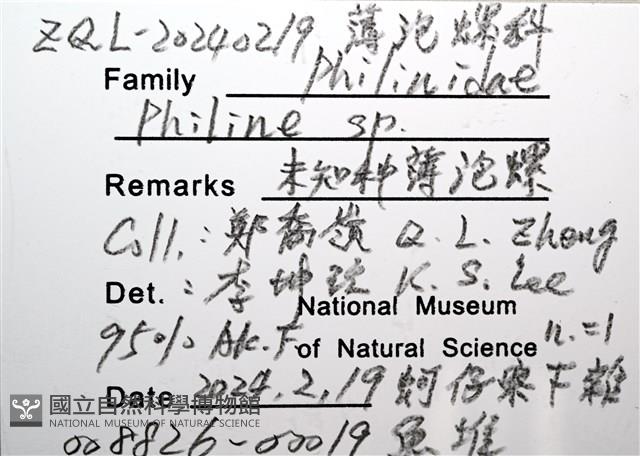 ZQL-20240219 薄泡螺科
Family Philinidae
Philine sp.
Remarks 未知种薄泡螺
Coll.: 鄭喬嶺 Q. L. Zhong
Det.: 李坤 K. S. Lee
National Museum
95% Alc. F. of Natural Science n.=1
Date 2024.2.19 蚵仔寮下雜
國立自然科學博物館
NATIONAL MUSEUM OF NATURAL SCIENCE
008826-00019 魚堆